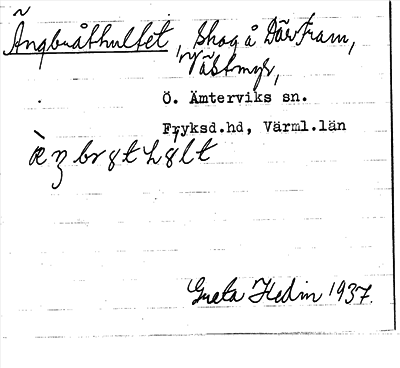 Ängbråthultet, skog å Där Fram,
Västmyr,
Ö. Ämterviks sn.
Fryksd.hd, Värml.län
Greta Hedin 1937.